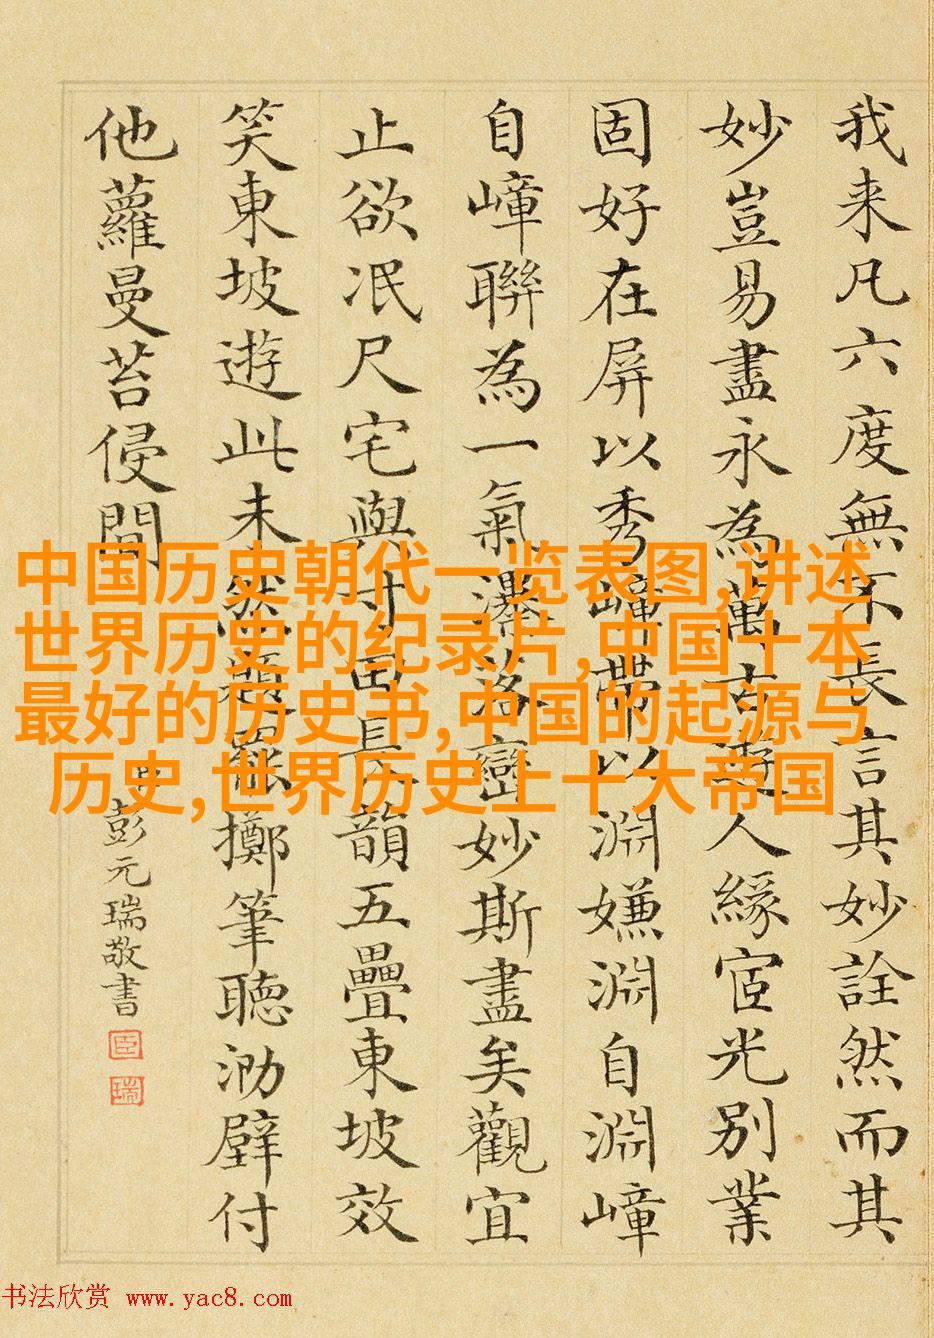 我来凡六度無不長言其妙詮然而其
妙豈易盡永為萬古人緣宧光別業
固好在屏以秀嶂帶以淵嫌淵自淵嶂
自嶂聯為一氣瀑落巒妙斯盡矣觀宜
止欲冺尺宅與寸田長韻五疊東坡效
笑東坡遊此未然題罷擲筆聽泐壁付
他蘿曼苔侵間
臣彭元瑞敬書
臣
瑞
中国历史朝代一览表图,讲述
世界历史的纪录片,中国十本
最好的历史书,中国的起源与
历史,世界历史上十大帝国
书法欣赏 www.yac8.com